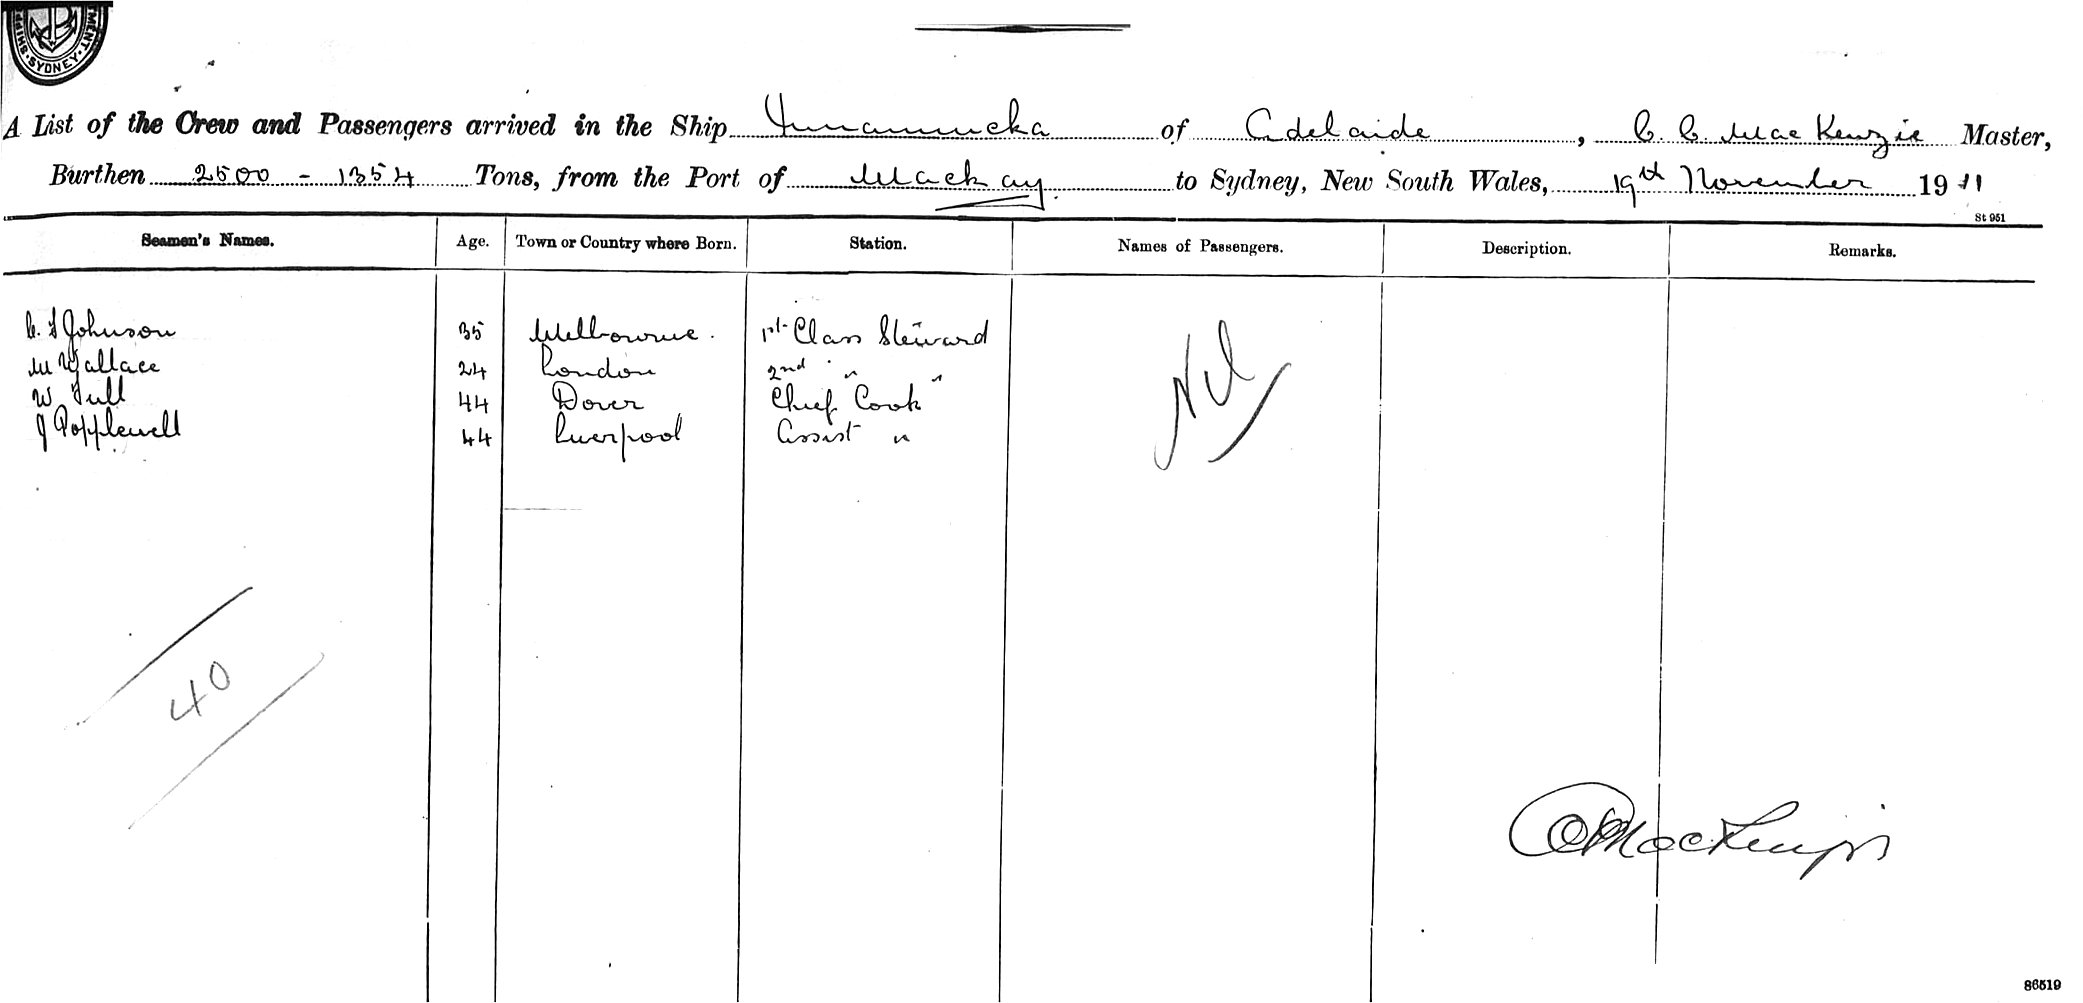 SHIPP MENT · SYDNEY ·
A List of the Crew and Passengers arrived in the Ship Innamincka of Adelaide, C. C. MacKenzie Master,
Burthen 2500 - 1354 Tons, from the Port of Mackay to Sydney, New South Wales, 19th November 1911
St 951
Seamen's Names. Age. Town or Country where Born. Station. Names of Passengers. Description. Remarks.
C. F Johnson 35 Melbourne. 1st Class Steward Nil
M Wallace 24 London 2nd " "
W Tull 44 Dover Chief Cook
J Popplewell 44 Liverpool Assist "
40
MacKenzie
86519